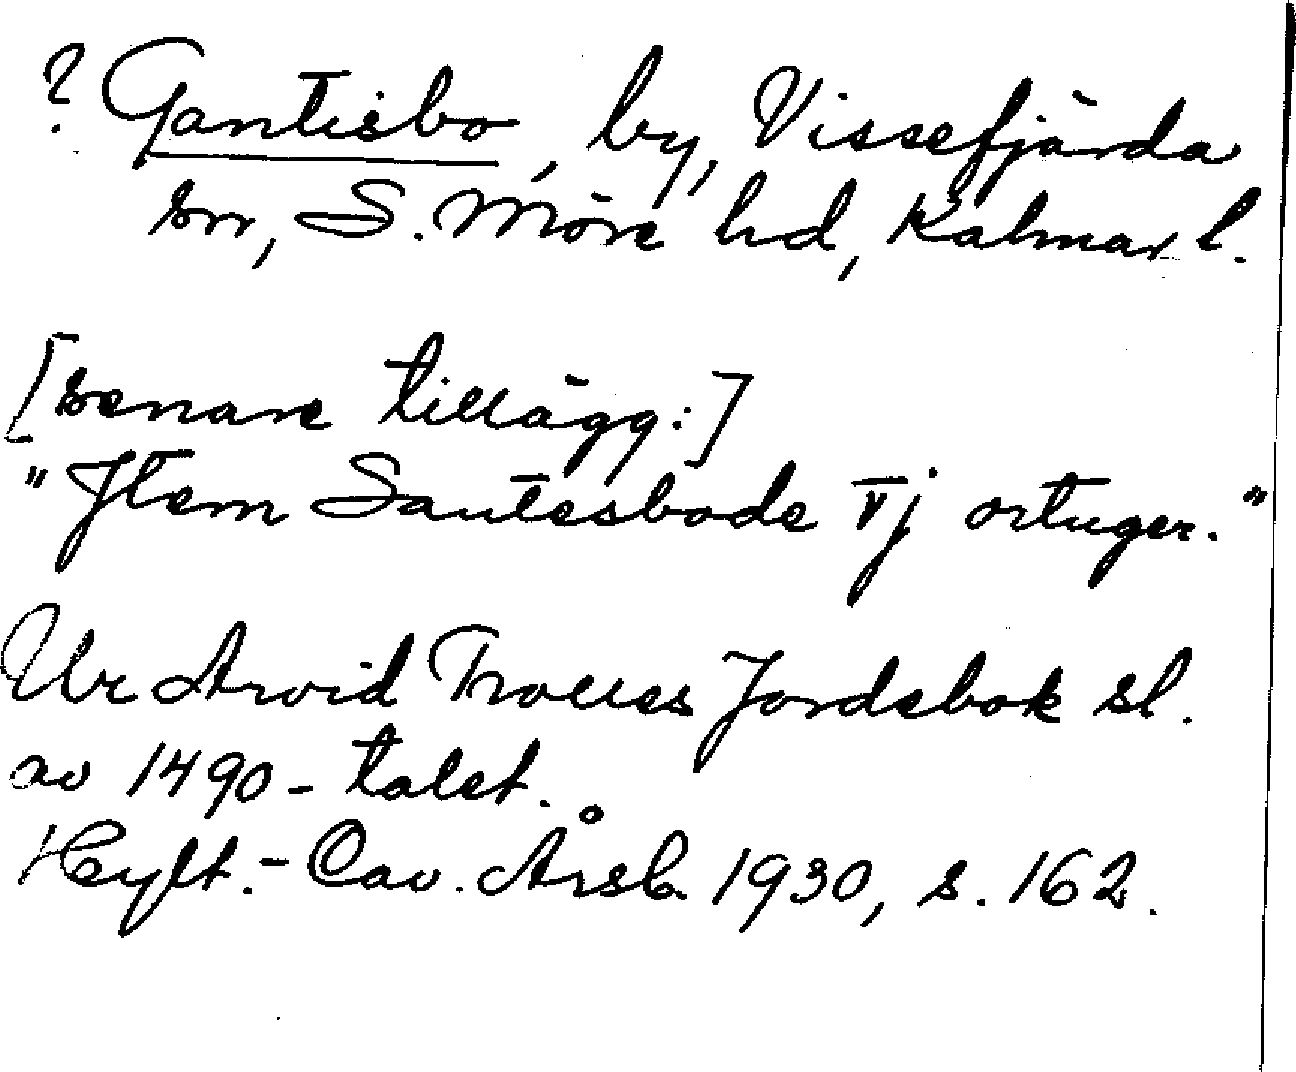 ? Gantesbo, by, Vissefjärda
sn, S. Möre hd, Kalmar l.
[senare tillägg:]
"Jtem Santesbode vj ortuger."
Ur Arvid Trolles Jordebok sl.
av 1490-talet.
Hylt.-Cav. Årsb. 1930, s. 162.